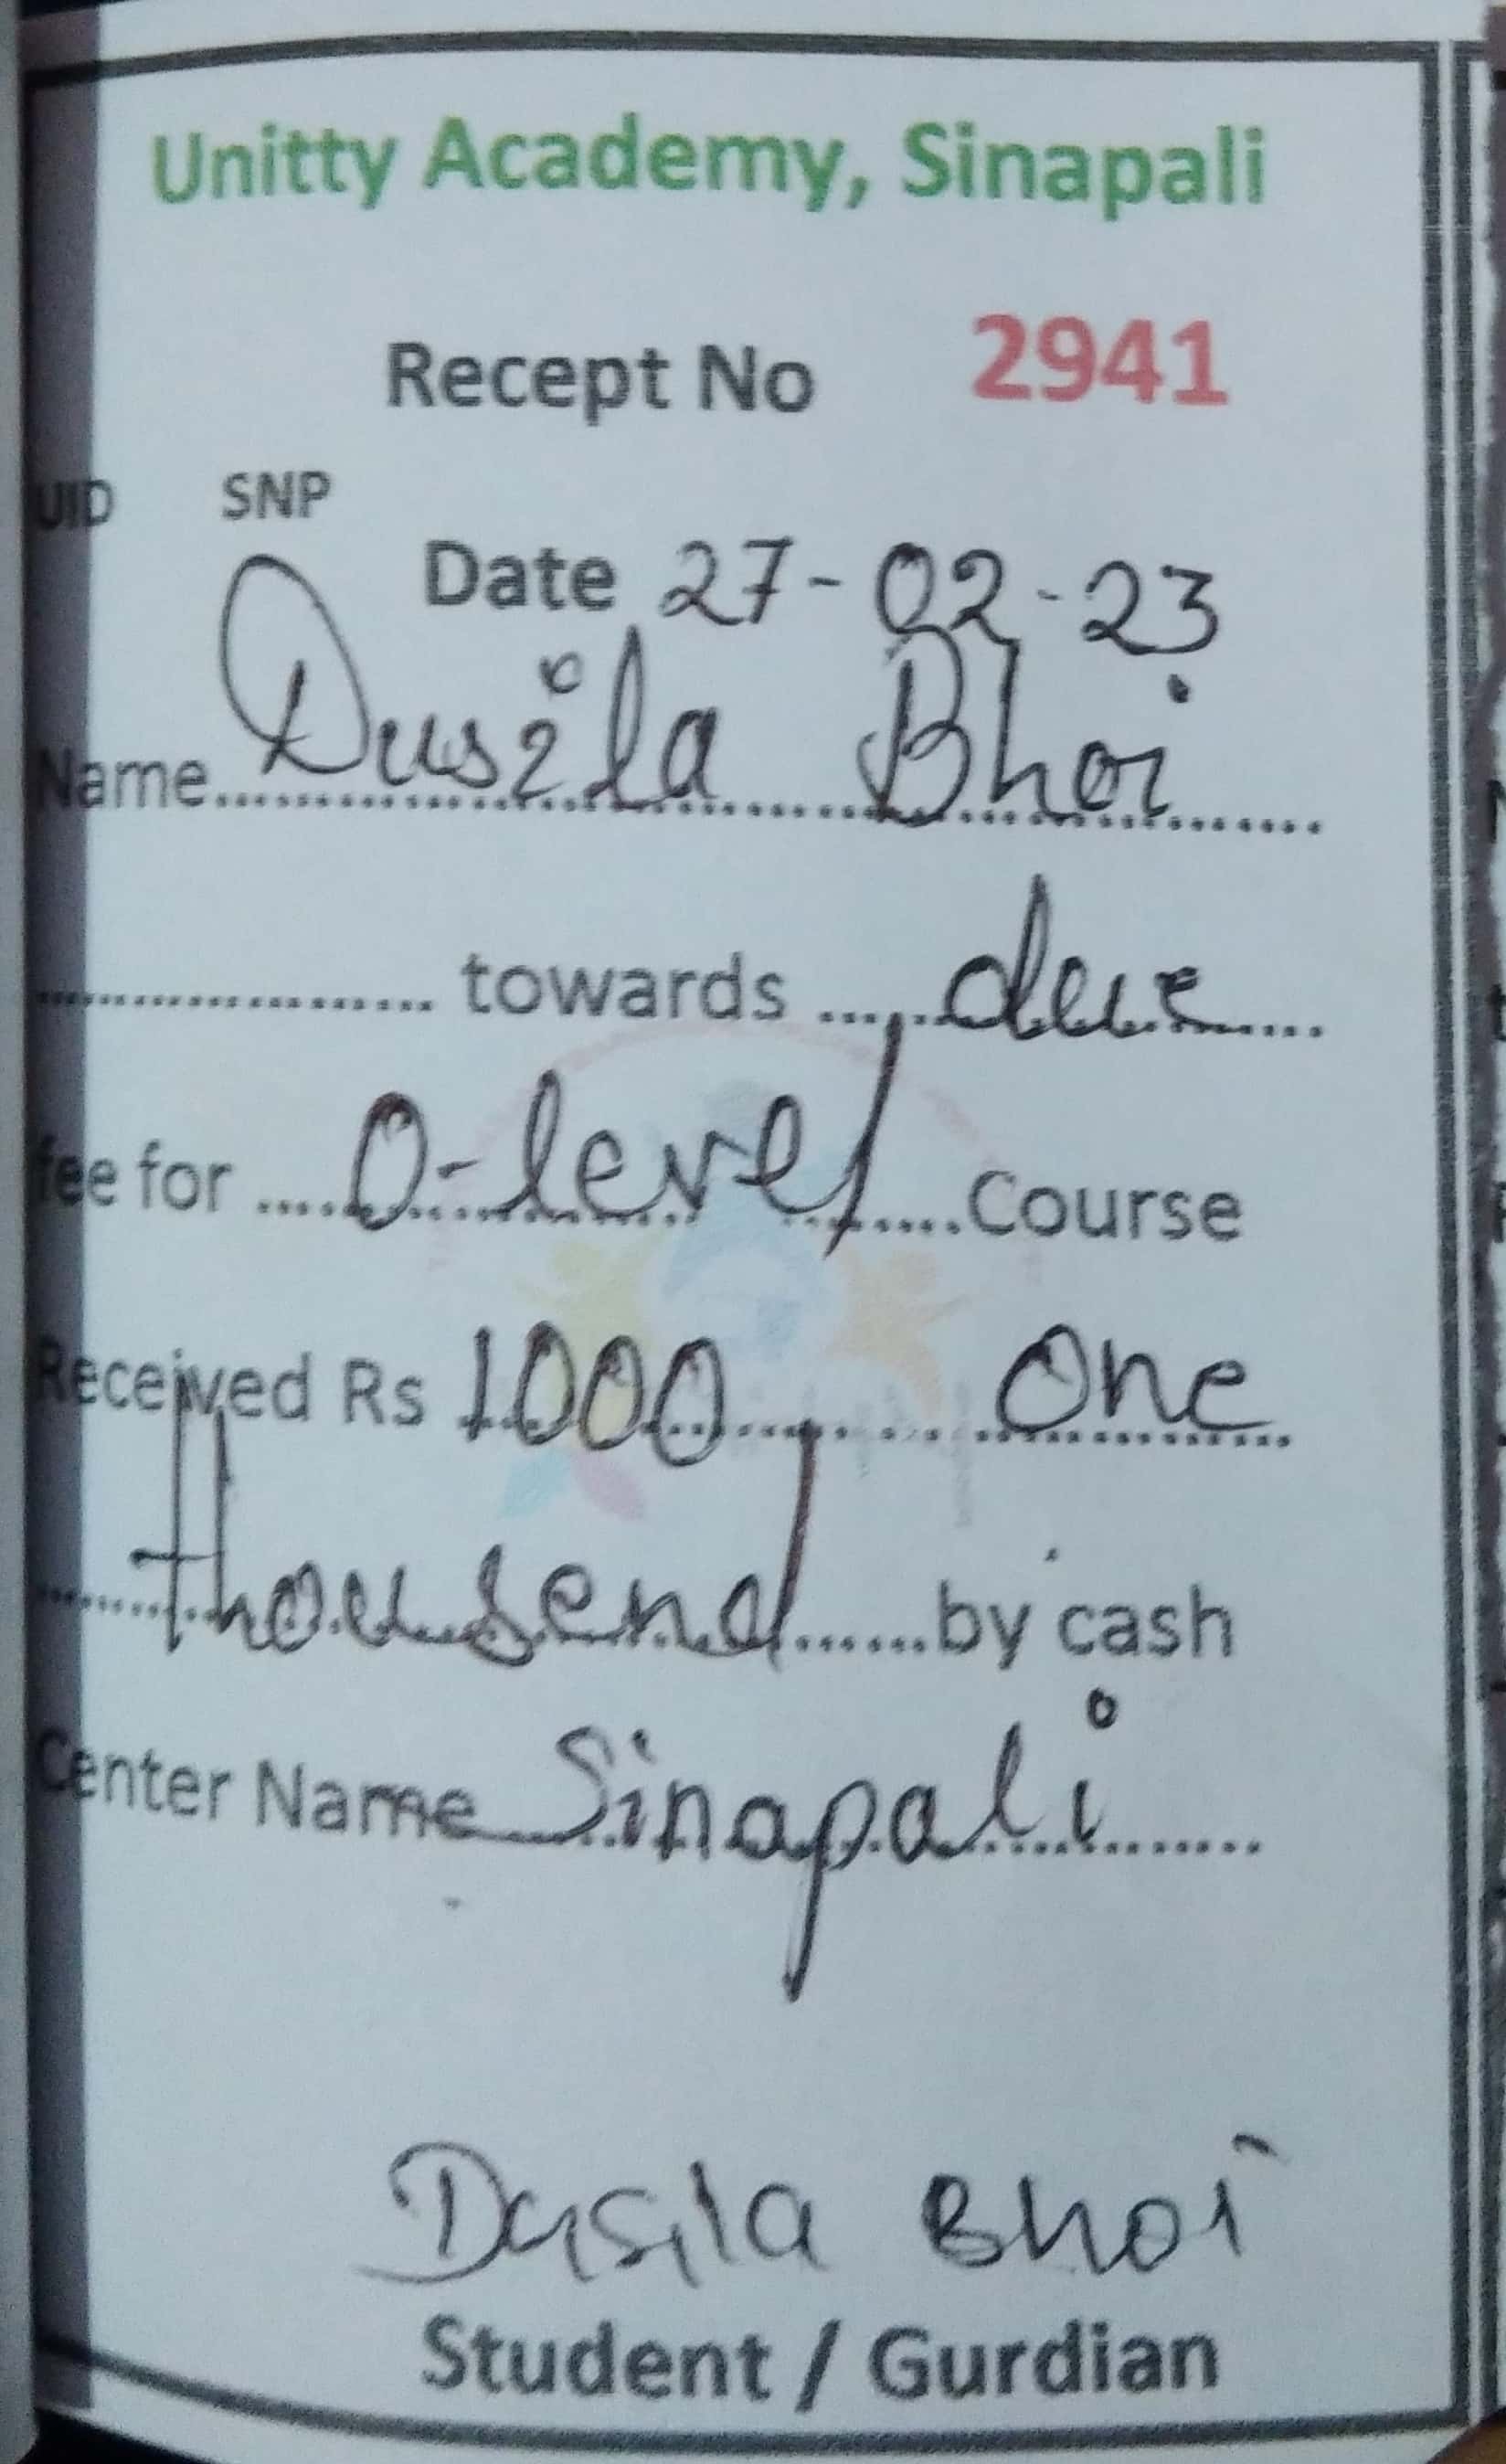 Unitty Academy, Sinapali
Recept No 2941
UID SNP
Date 27-02-23
Name Dusila Bhoi
towards due
fee for O-level Course
Received Rs 1000 One
thousend by cash
Center Name Sinapali
Dusila Bhoi
Student / Gurdian